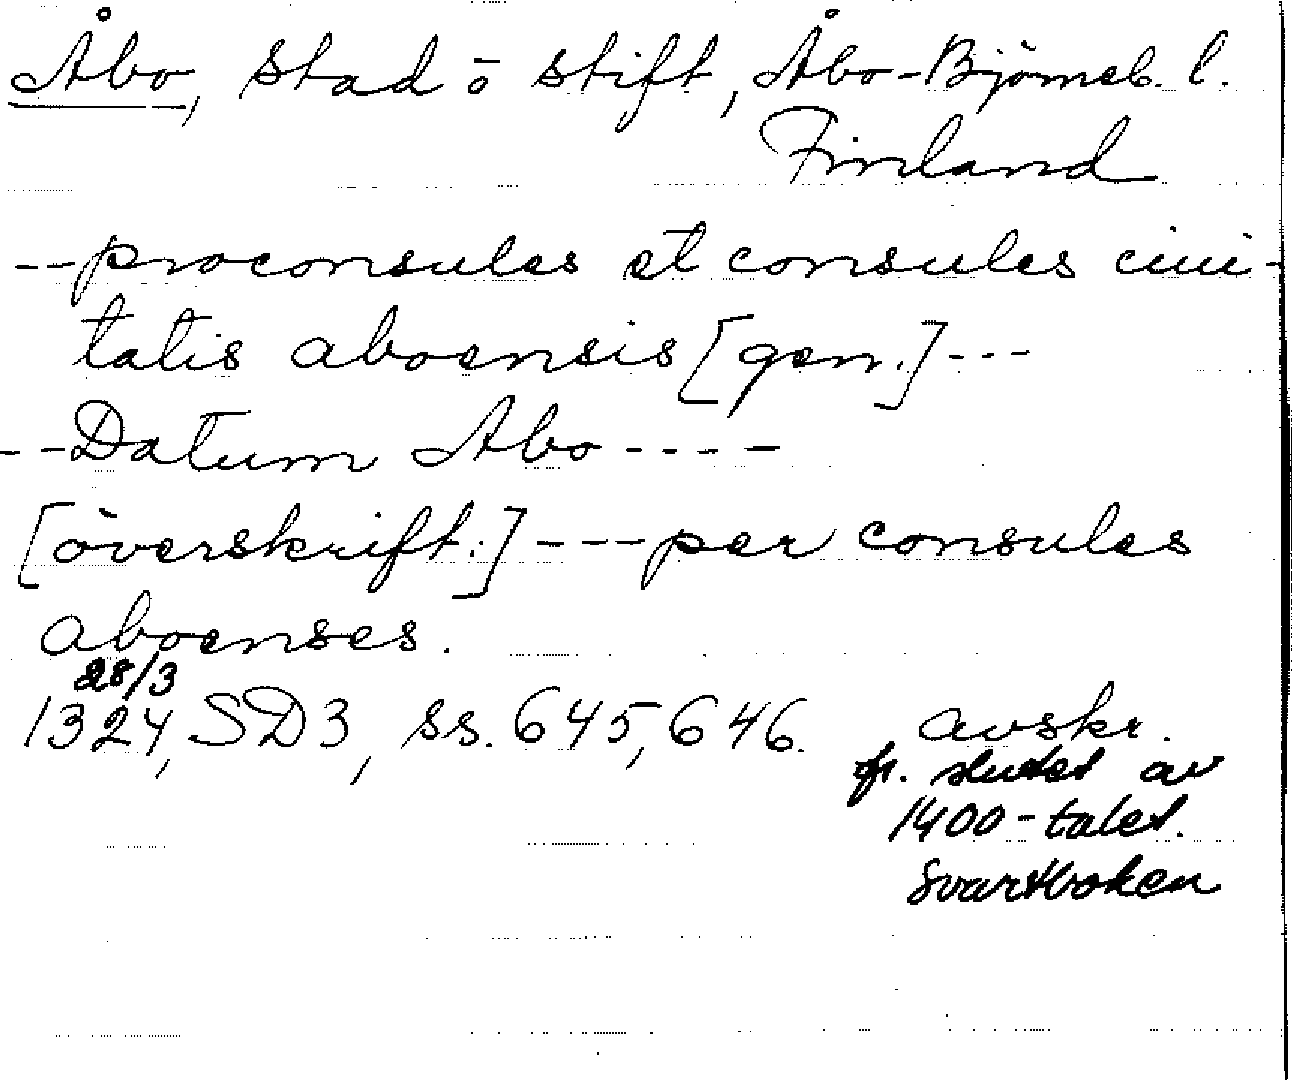 Åbo, Stad ō stift, Åbo-Björneb. l.
Finland
--proconsules et consules ciui-
tatis aboensis [gen.]---
--Datum Åbo----
[överskrift:]---per consules
aboenses.
28/3
1324, SD3, ss. 645, 646. avskr.
fr. slutet av
1400-talet.
Svartboken